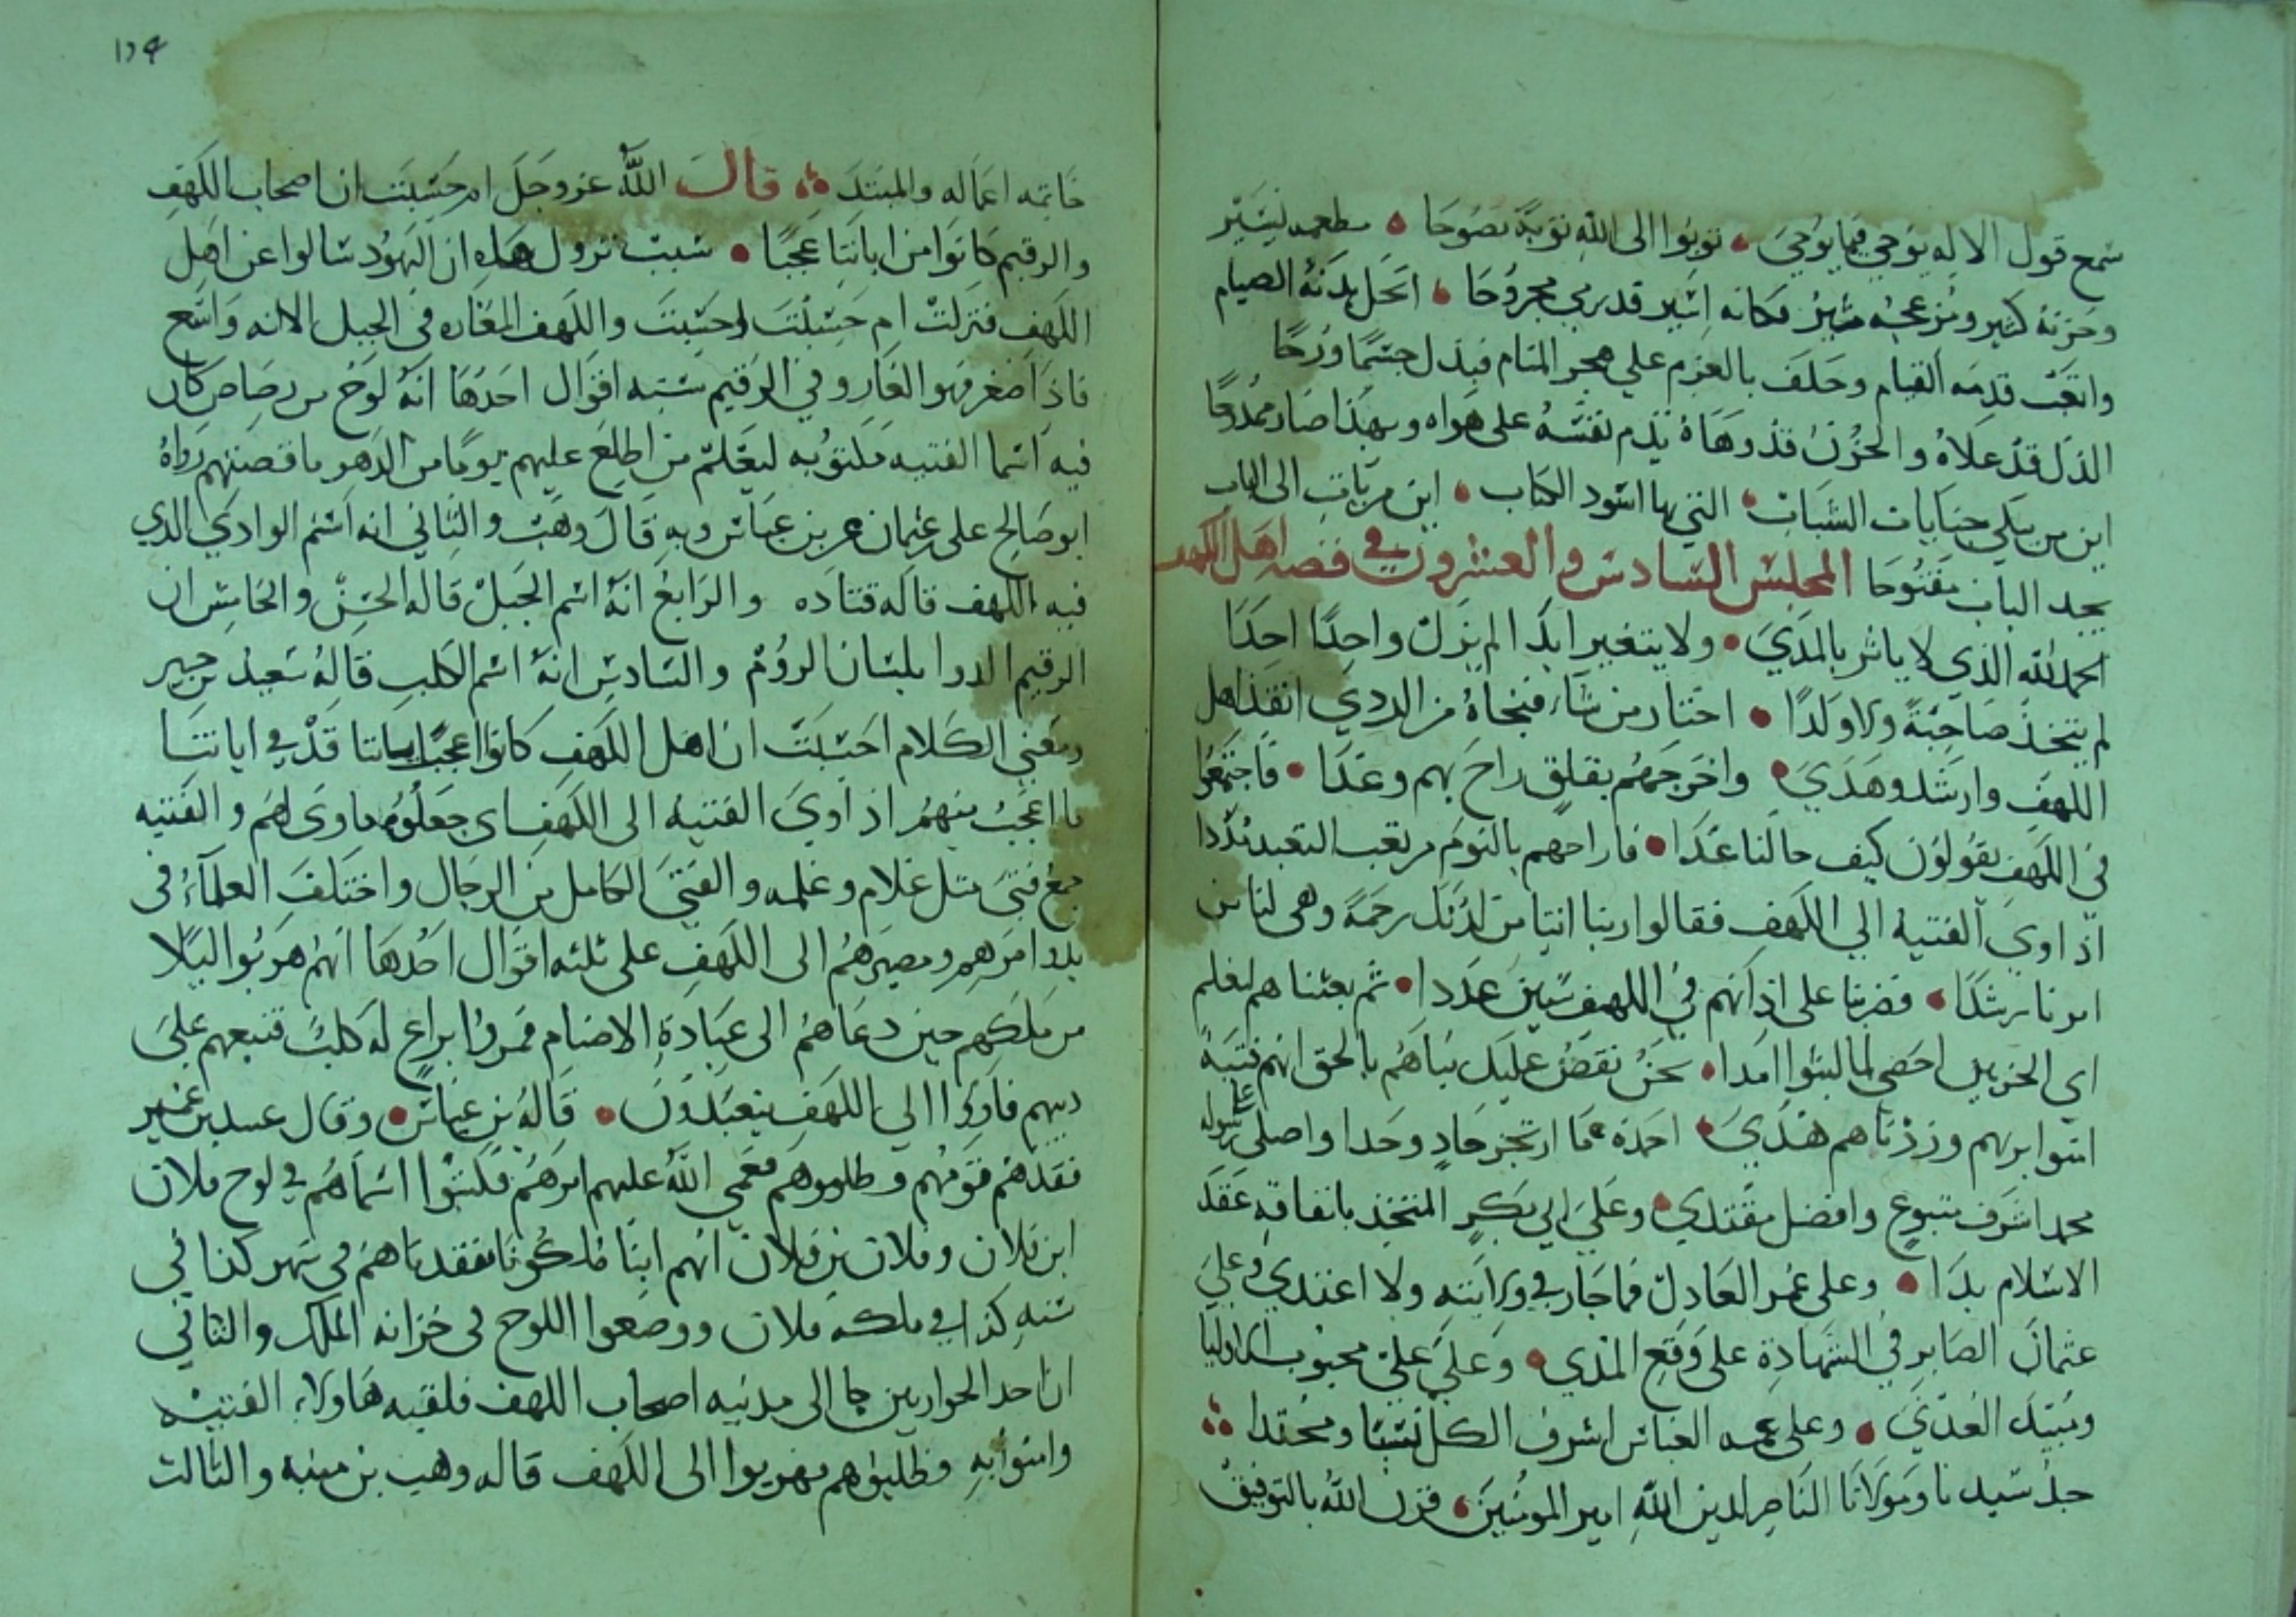 سمع قول الاله يوحي فيما يوحي • توبوا الى الله توبة نصوحا • مطعمه يسير
وحزنه كثير ومزعجه مثير فكانه اسير قد رمي مجروحا • انحل بدنه الصيام
واتعبت قدمه القيام وحلف بالعزم علي هجر المنام فبدل جسما وروحا
الذل قد علاه والحزن قد وهاه يذم نفسه على هواه وبهذا صار ممدوحا
اين من يبكي جنايات الشباب • التي بها اسود الكتاب • اين من يات الى الباب
يجد الباب مفتوحا المجلس السادس والعشرون في قصه اهل الكهف
الحمد لله الذي لا ياثر بالمدي • ولا يتغير ابدا لم يزل واحدا احدا
لم يتخذ صاحبة ولا ولدا • اختار من شاء فنجاه من الردي انقذ اهل
الكهف وارشد وهدي • واخرجهم بقلق راح بهم وغدا • فاجتمعوا
في الكهف يقولون كيف حالنا غدا • فاراحهم بالنوم من تعب التعبد
اذ اوي الفتيه الي الكهف فقالوا ربنا اتنا من لدنك رحمة وهى لنا من
امرنا رشدا • فضربنا على اذانهم في الكهف سنين عددا • ثم بعثناهم لنعلم
اي الحزبين احصى لما لبثوا امدا • نحن نقص عليك نباهم بالحق انهم فتية
امنوا بربهم وزدناهم هدي • احمده ما ارتجز حاد وحدا واصلى على رسوله
محمد اشرف متبوع وافضل مقتدي • وعلي ابي بكر المتخذ بانفاقه عقد
الاسلام يدا • وعلى عمر العادل فما جار في ولايته ولا اعتدي وعلي
عثمان الصابر في الشهادة على وقع المدي • وعلي علي محبوب الاوليا
ومبيد العدي • وعلى عمه العباس اشرف الكل نسبا ومحتدا
جد سيدنا ومولانا الناصر لدين الله امير المومنين • قرن الله بالتوفيق
١٢٩
خاتمه اعماله والمبتد قال الله عز وجل ام حسبت ان اصحاب الكهف
والرقيم كانوا من اياتنا عجبا • سبب نزول هذه ان اليهود سالوا عن اهل
الكهف فنزلت ام حسبت احسبت والكهف المغاره في الجبل الا انه واسع
فاذا صغر فهو الغار وفي الرقيم سته اقوال احدها انه لوح من رصاص كان
فيه اسما الفتيه مكتوبه ليعلم من اطلع عليهم يوما من الدهر ما قصتهم رواه
ابو صالح على بن عباس وبه قال وهب والثاني انه اسم الوادي الذي
فيه الكهف قاله قتاده والرابع انه اسم الجبل قاله الحسن والخامس ان
الرقيم الدوا بلسان الروم والسادس انه اسم الكلب قاله سعيد بن جبير
ومعني الكلام احسبت ان اهل الكهف كانوا اعجب اياتنا قد في اياتنا
ما اعجب منهم اذ اوي الفتيه الى الكهف اي جعلوه ماوى لهم والفتيه
جمع فتى مثل غلام وغلمه والفتي الكامل من الرجال واختلف العلماء في
بدو امرهم ومصيرهم الى الكهف على ثلثه اقوال احدها انهم هربوا ليلا
من ملكهم حين دعاهم الى عبادة الاصنام فمروا براع له كلب فتبعهم علي
دينهم فاووا الي الكهف يتعبدون • قاله بن عباس • وقال عبيد بن عمير
فقدهم قومهم وطلبوهم فعمي الله عليهم امرهم فكتبوا اسماهم في لوح فلان
ابن فلان وفلان بن فلان انهم ابنا ملوكنا فقدناهم في شهر كذا في
سنه كذا في ملكه فلان ووضعوا اللوح في خزانه الملك والثاني
ان احد الحواريين جا الى مدينه اصحاب الكهف فلقيه هاولاء الفتيه
وامنوا به وطلبوهم فهربوا الى الكهف قاله وهب بن منبه والثالث